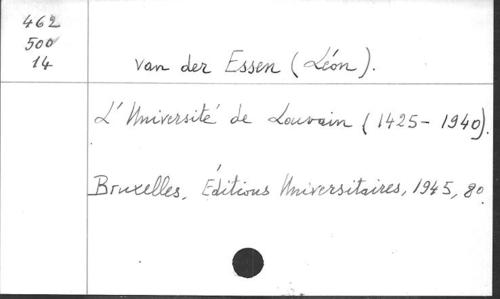 462
500
14
van der Essen (Léon).
L'Université de Louvain (1425-1940).
Bruxelles, Éditions Universitaires, 1945, 8o.